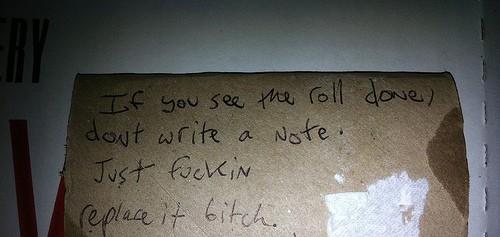 ERY
If you see the roll done,
dont write a note.
Just fuckin
replace it bitch.